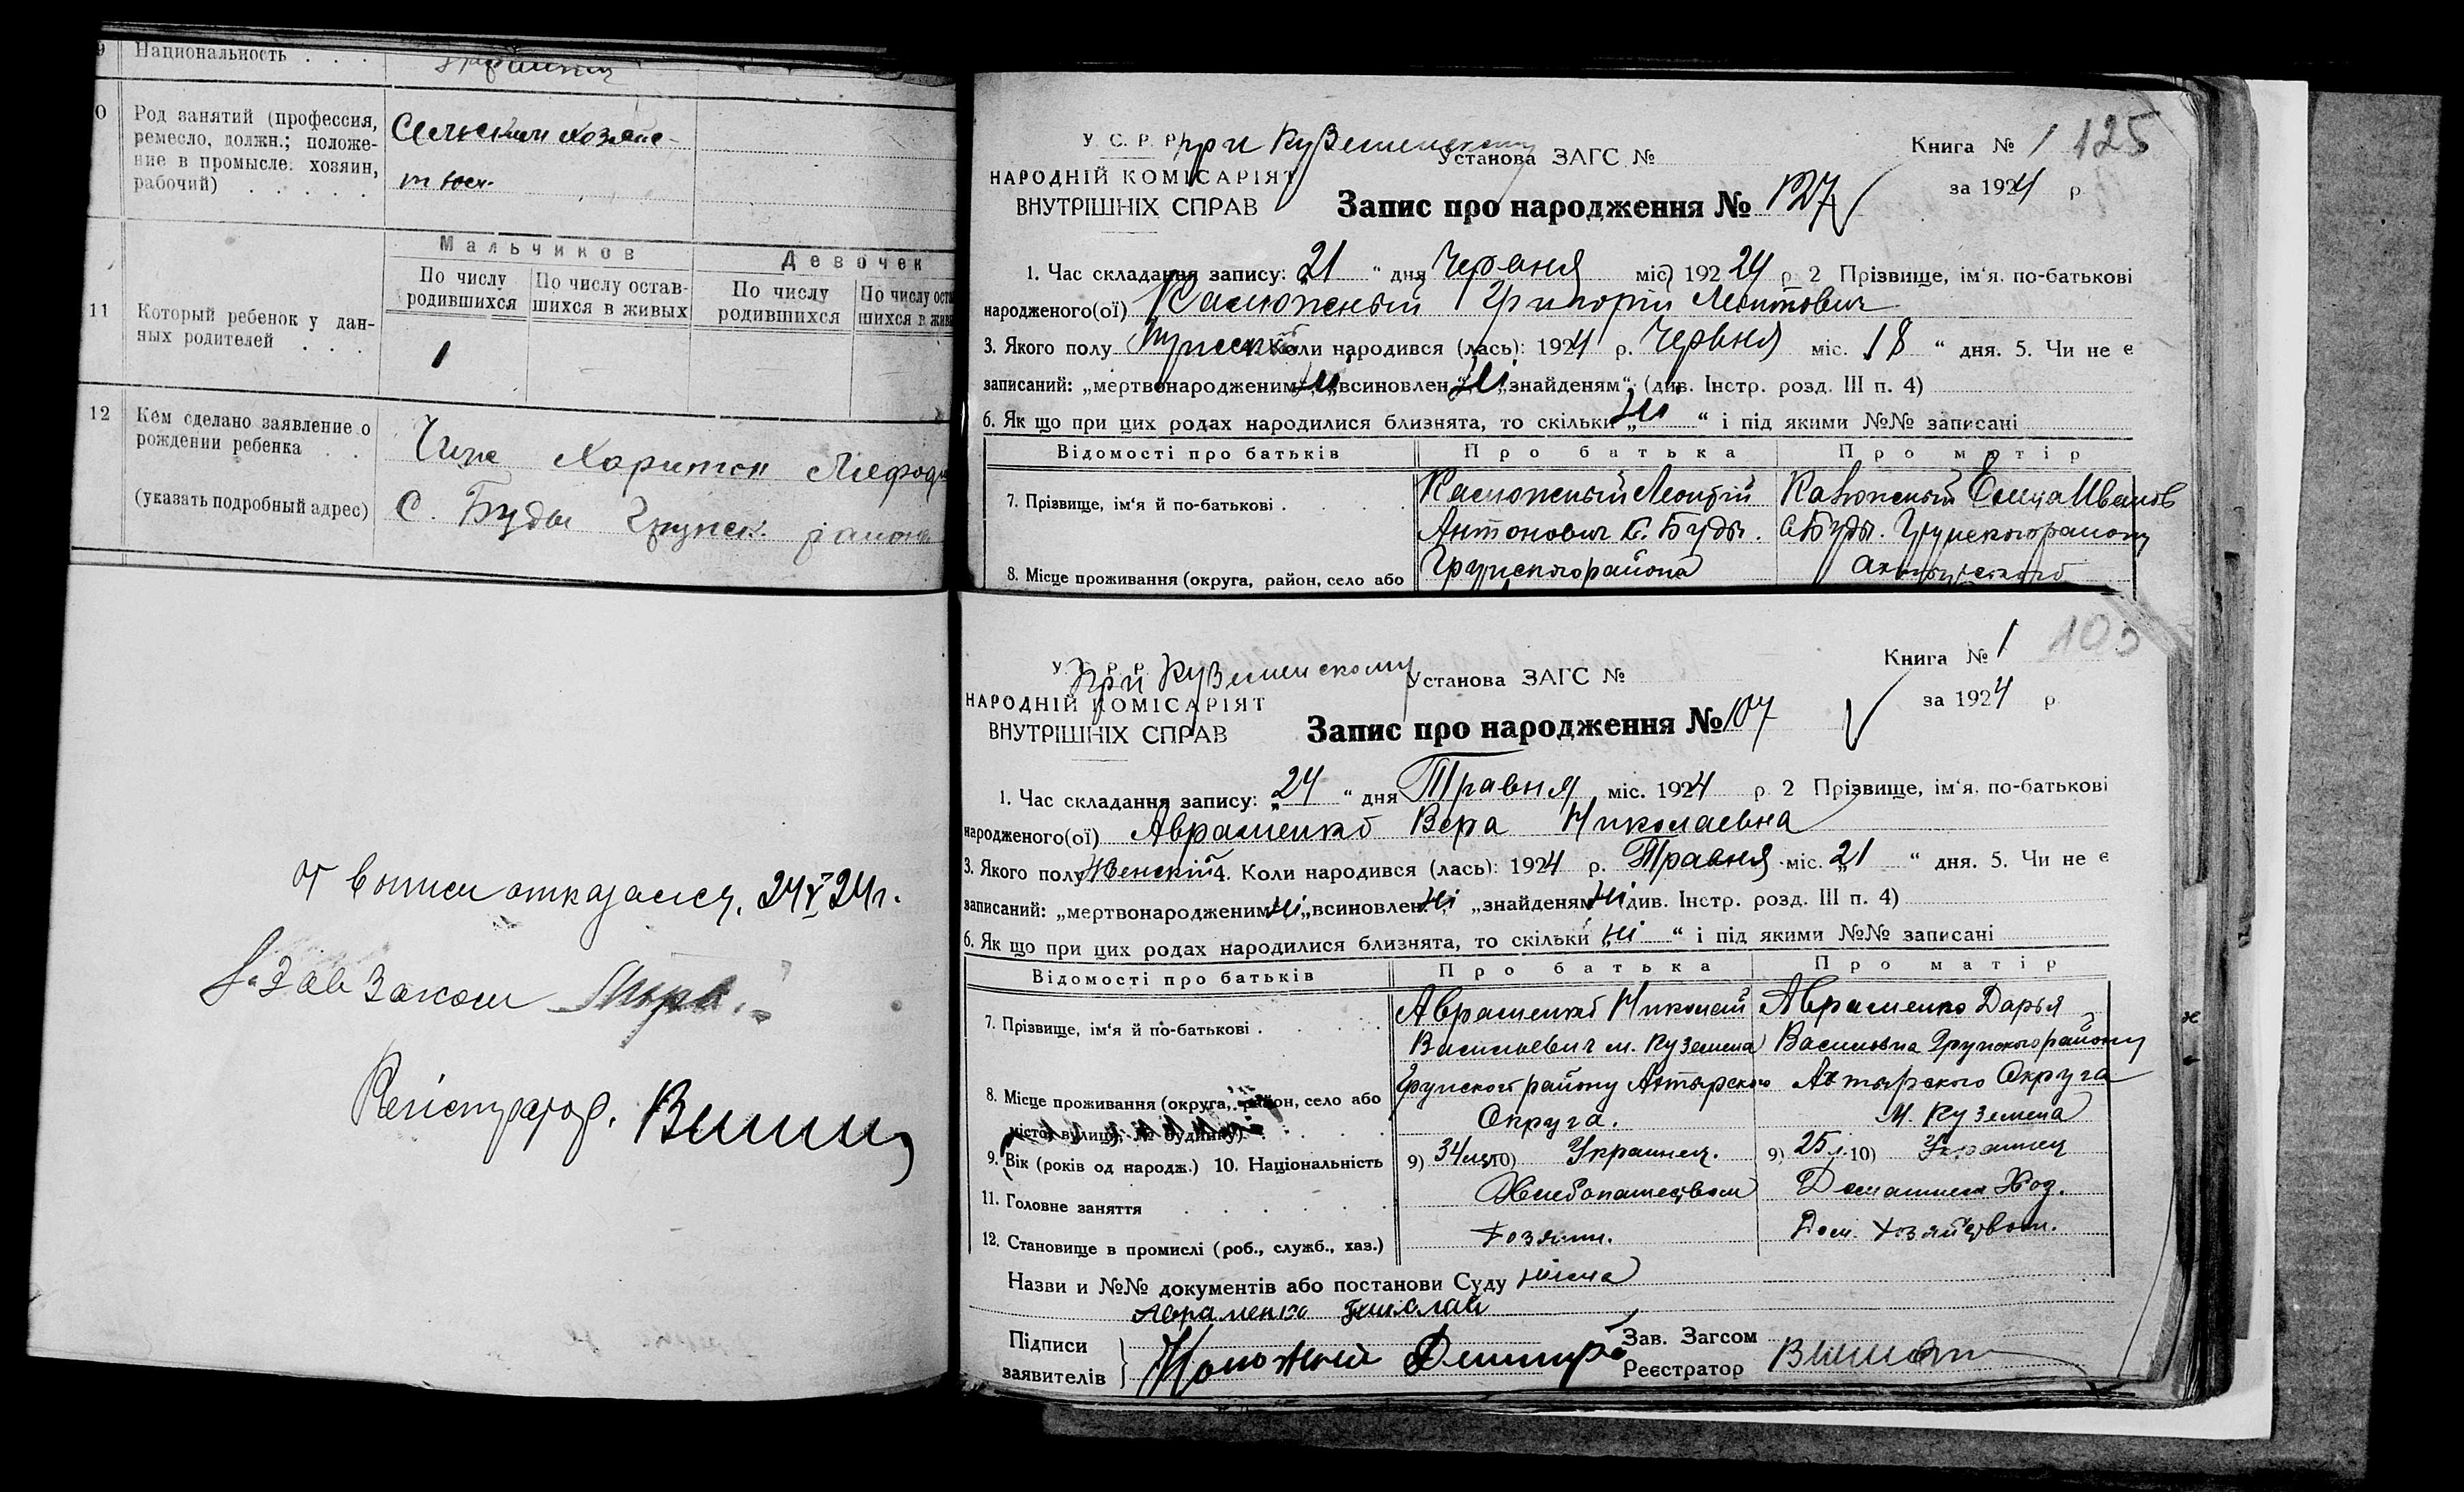 9 Национальность . . .
10 Род занятий (профессия,
ремесло, должн.; положе-
ние в промысле: хозяин,
рабочий) . . . . .
Сельским хозяйс-
твом
Мальчиков Девочек
По числу родившихся По числу остав-шихся в живых По числу родившихся По числу оста шихся в жив
11 Который ребенок у дан-
ных родителей . . .
1 — — —
12 Кем сделано заявление о
рождении ребенка . .
(указать подробный адрес)
Харитон Мефоди
С. Буды Грунск. района
У. С. Р. Р. при Куземенскому Установа ЗАГС № Книга № 1 125
НАРОДНІЙ КОМІСАРІЯТ
ВНУТРІШНІХ СПРАВ
Запис про народження № 127 за 1924 р
1. Час складання запису: „21“ дня Червня міс. 1924 р 2 Прізвище, ім‘я. по-батькові
народженого(ої) Калюжный Григорій Леонтович
3. Якого полу Мужской 4. Коли народився (лась): 1924 р. Червня міс. 18 “ дня. 5. Чи не є
записаний: „мертвонародженим“ ні, „всиновлен.“ ні „знайденям“ (див. Інстр. розд. III п. 4)
6. Як що при цих родах народилися близнята, то скільки „ні“ і під якими №№ записані
Відомості про батьків Про батька Про матір
7. Прізвище, ім‘я й по-батькові . . . .
Калюжный Леонтій
Антонович с. Буды.
Калюжный Елена Иванов
с Буды. Грунского району
8. Місце проживання (округа, район, село або
Грунского района
У. С. Р. Р. при Куземенскому Установа ЗАГС № Книга № 1 105
НАРОДНІЙ КОМІСАРІЯТ
ВНУТРІШНІХ СПРАВ
Запис про народження № 107 за 1924 р
1. Час складання запису: „24“ дня Травня міс. 1924 р 2 Прізвище, ім‘я. по-батькові
народженого(ої) Авраменко Вера Николаевна
3. Якого полу Женскій 4. Коли народився (лась): 1924 р. Травня міс. 21 “ дня. 5. Чи не є
записаний: „мертвонародженим ні, „всиновлен. ні, „знайденям ні див. Інстр. розд. III п. 4)
6. Як що при цих родах народилися близнята, то скільки „ні“ і під якими №№ записані
Відомості про батьків Про батька Про матір
7. Прізвище, ім‘я й по-батькові . . . .
Авраменко Николай
Васильевич м. Куземена
Авраменко Дарья
Васильевна Грунского району
8. Місце проживання (округа, район, село або
місто, вулиця, № будинку) . . . .
Грунского району Ахтырского
Округа.
Ахтырского Округа
м. Куземена
9. Вік (років од народж.) 10. Національність
9) 34 лет 10) Украинец.
9) 25 л. 10) Украинец
11. Головне заняття . . . . . .
Хлебопашеством
Домашнем Хоз.
12. Становище в промислі (роб., служб., хаз.)
Хозяин.
Дом. хозяйством.
Назви и №№ документів або постанови Суду нима
Підписи
заявителів
Авраменко
Зав. Загсом
Реєстратор
от вописи отказался. 24 V 24 г.
Зав Загсом
Регістратор.